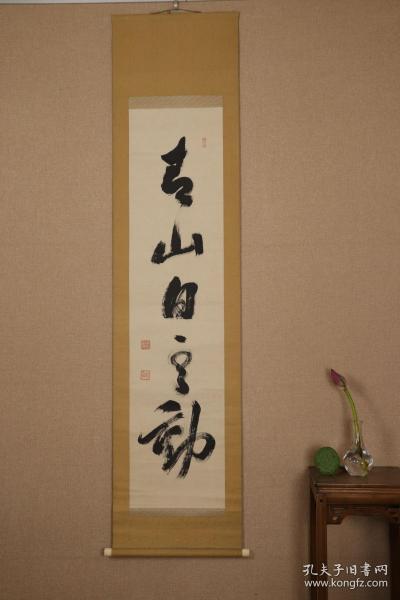 青山自不動
孔夫子旧书网
www.kongfz.com